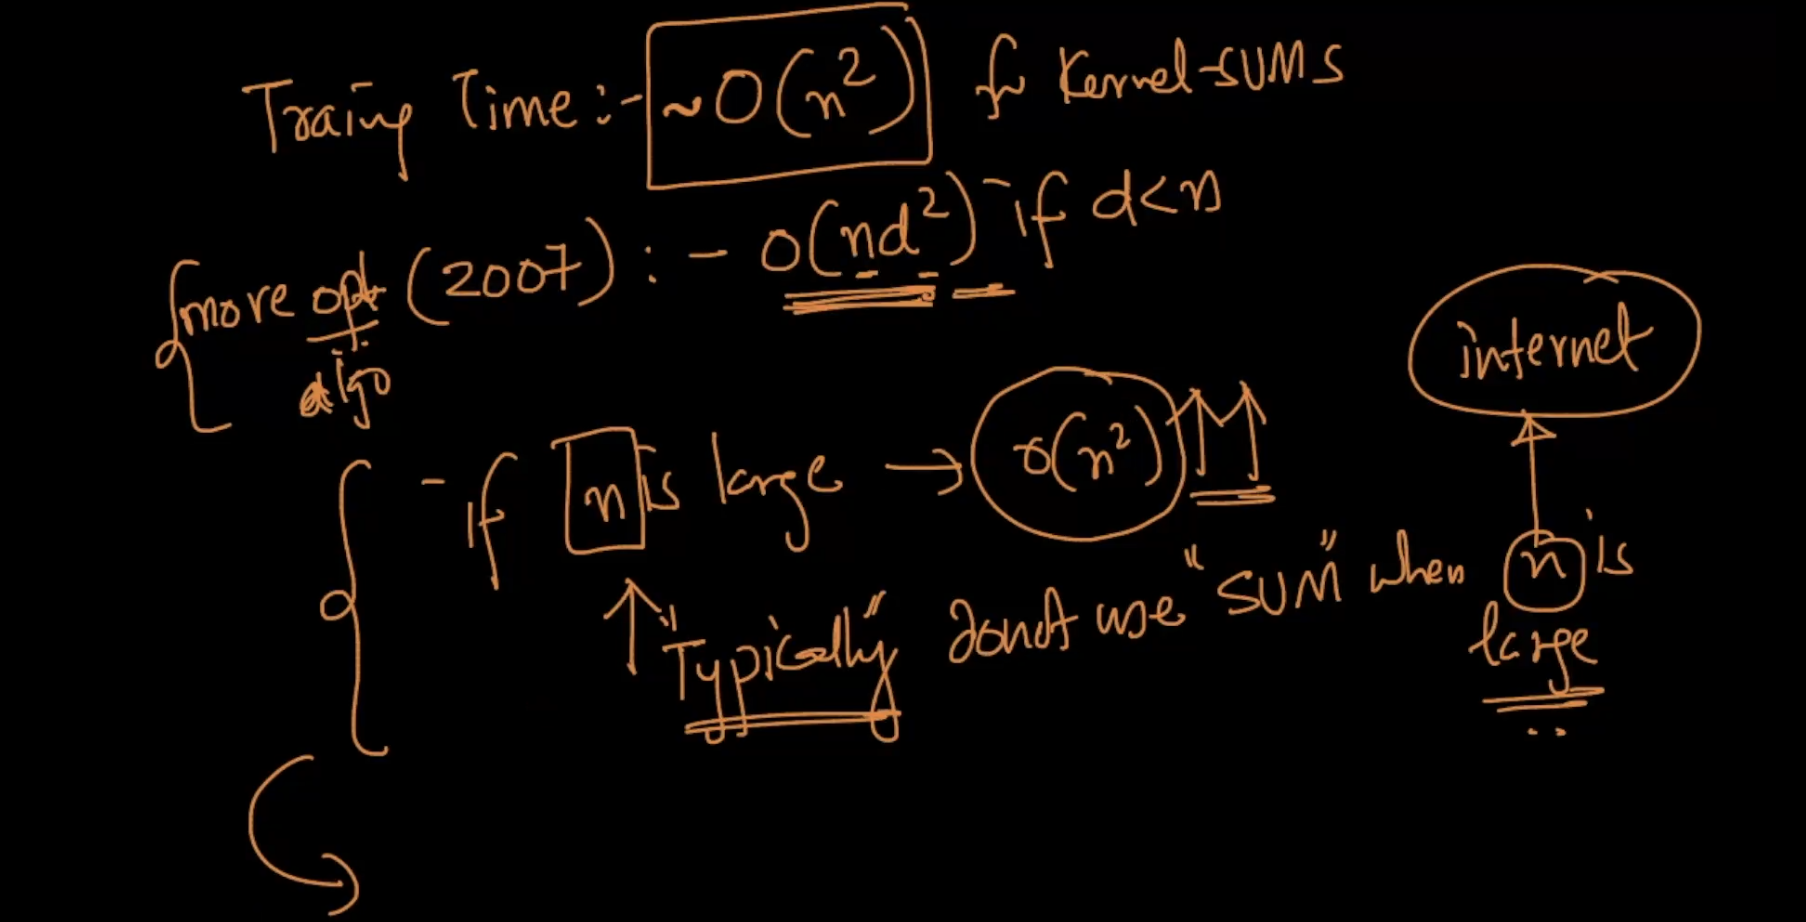 Traing Time :- ~O(n²) for Kernel-SVMs
more opt algo (2007) :- O(nd²) if d<n
- if n is large → O(n²) ↑↑↑
internet
"Typically" donot use "SVM" when n is large